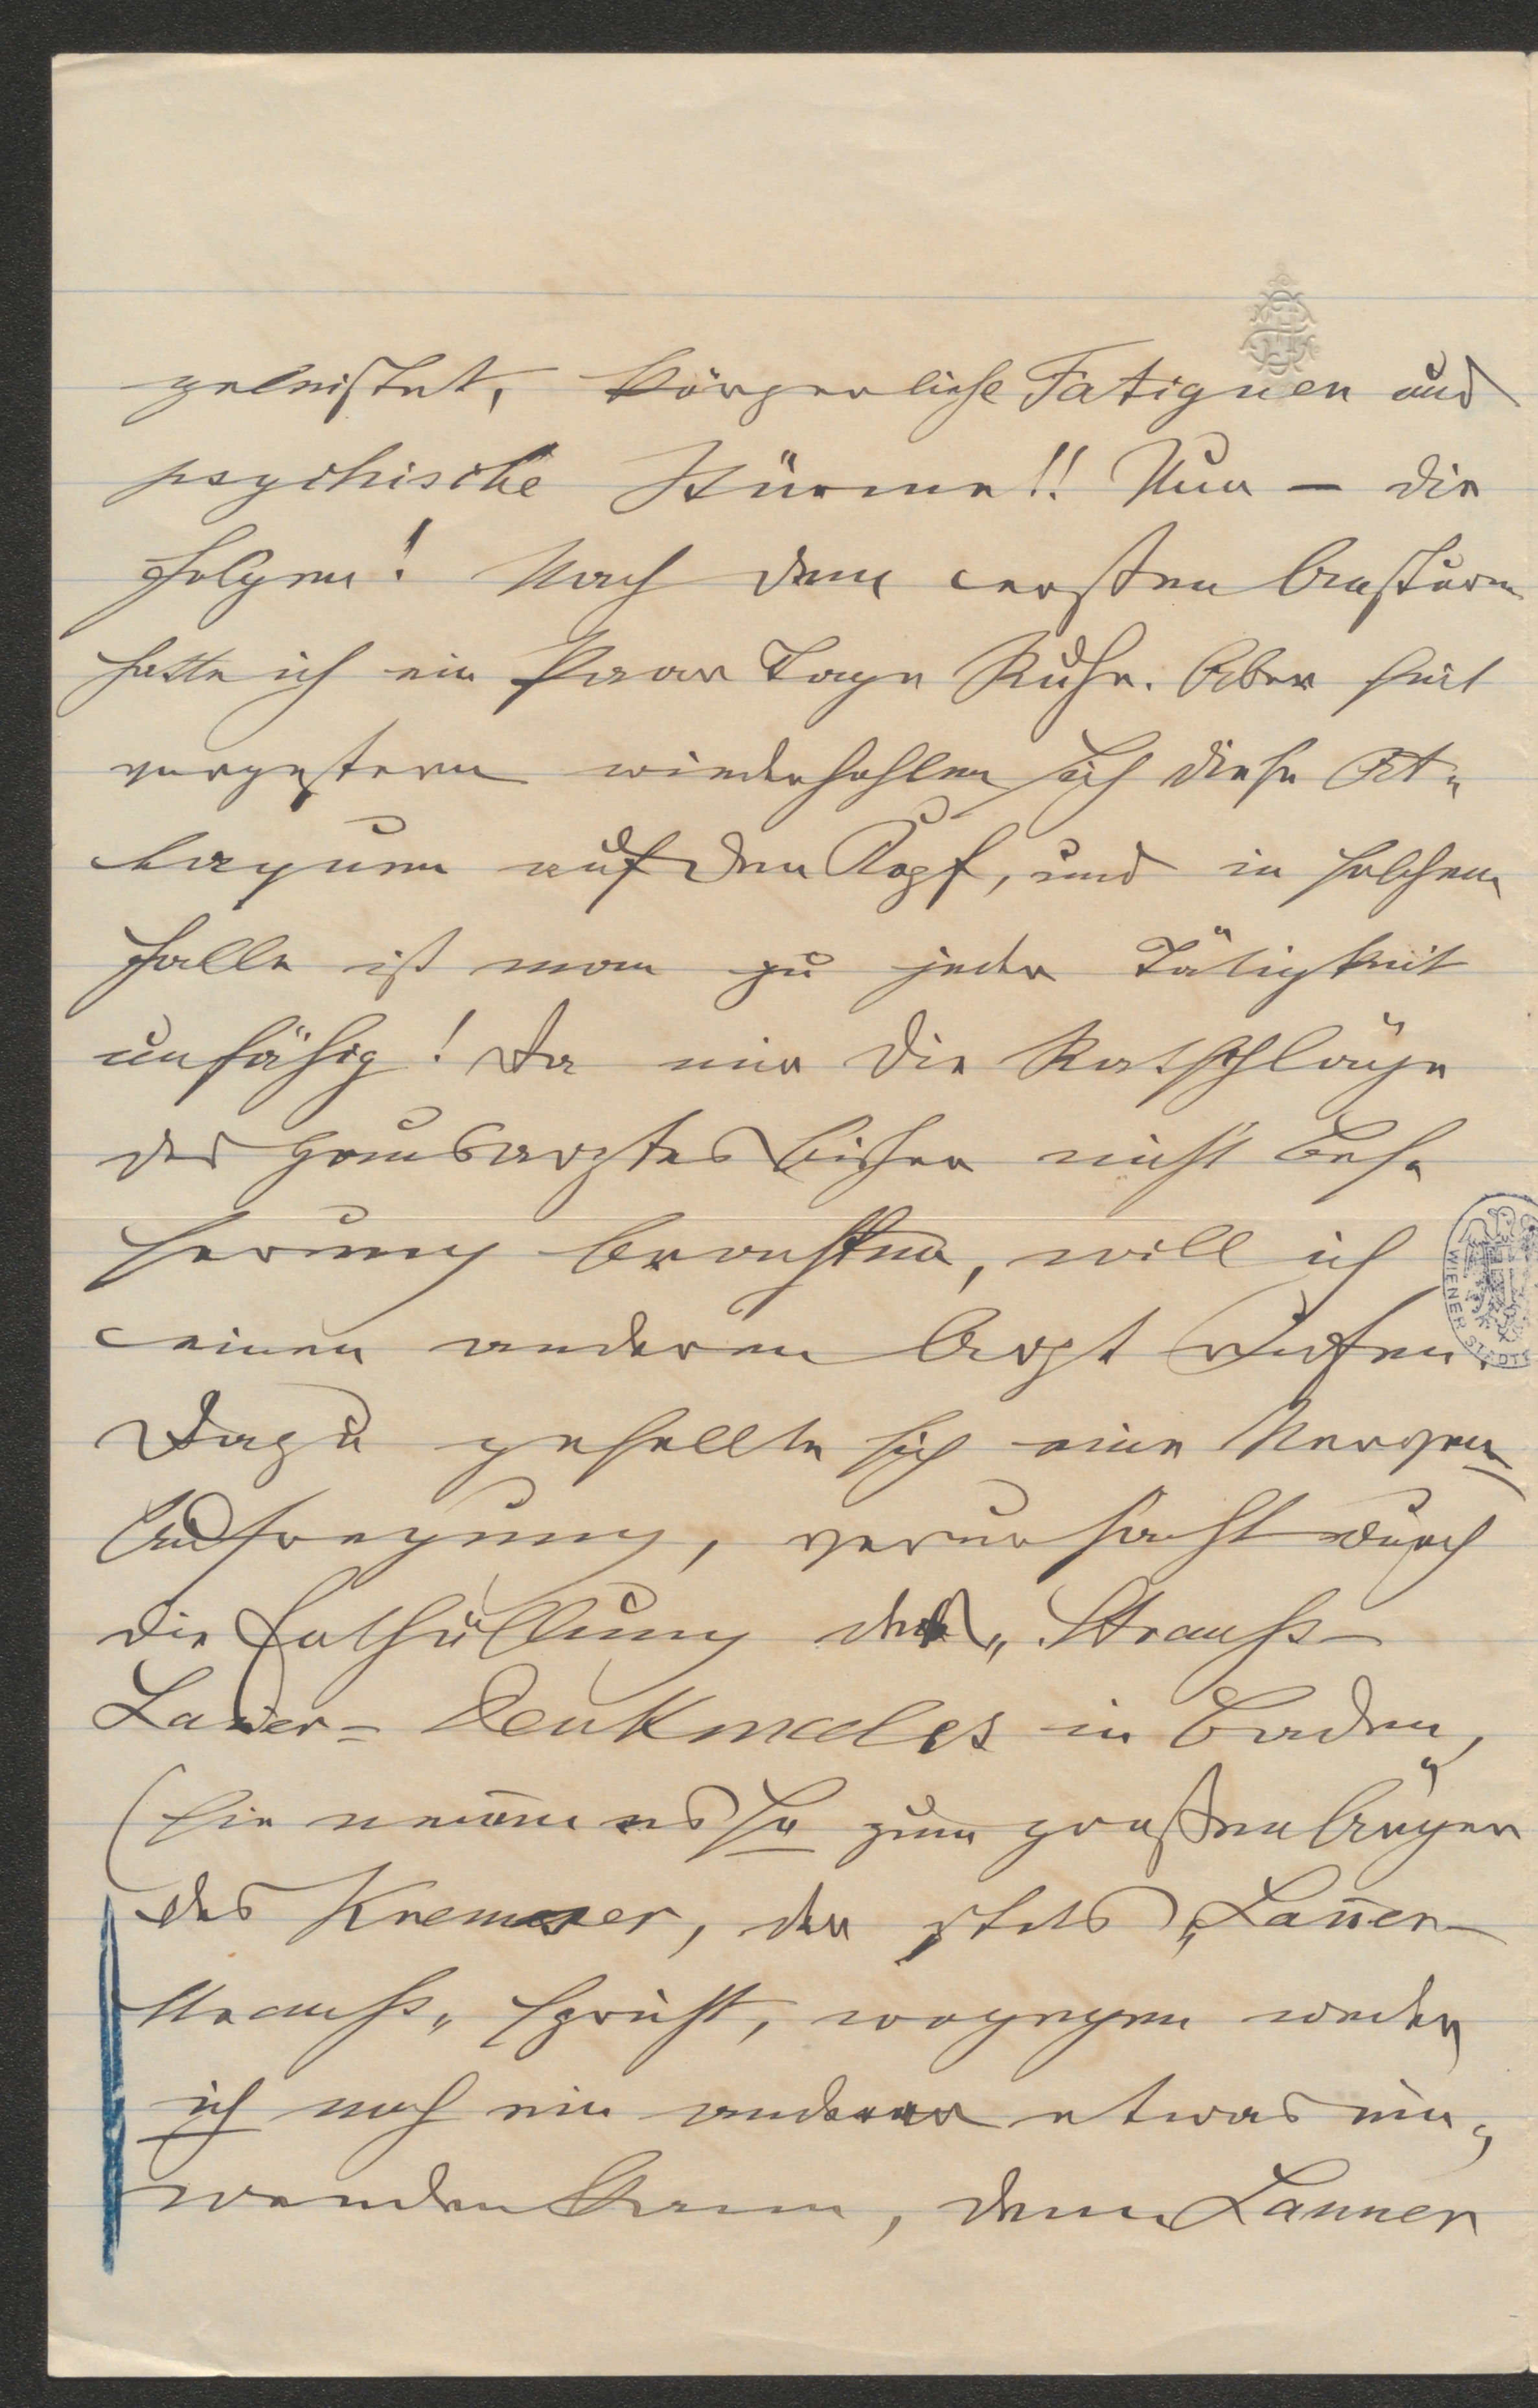 geleistet, körperliche Fatiguen und
psychische Stürme!! Nun — die
Folgen! Nach dem ersten Ansturm
hatte ich ein Paar Tage Ruhe. Aber seit
vorgestern wiederhohlen sich diese At-
taquen auf den Kopf, und in solchem
Falle ist man zu jeder Tätigkeit
unfähig! Da mir die Ratschläge
des Hausarztes bisher nicht Bes-
serung brachten, will ich
einen anderen Arzt rufen.
Dazu gesellte sich eine Nerven-
Aufregung, verursacht durch
die Enthüllung des „Strauss-
Lanner-Denkmales in Baden,
(Sie nennen es so zum großen Ärger
des Kremser, der stets „Lan̄er-
Strauss„ spricht, wogegen weder
ich noch ein anderer etwas ein-
wenden kann, denn Lanner
WIENER STÄDT